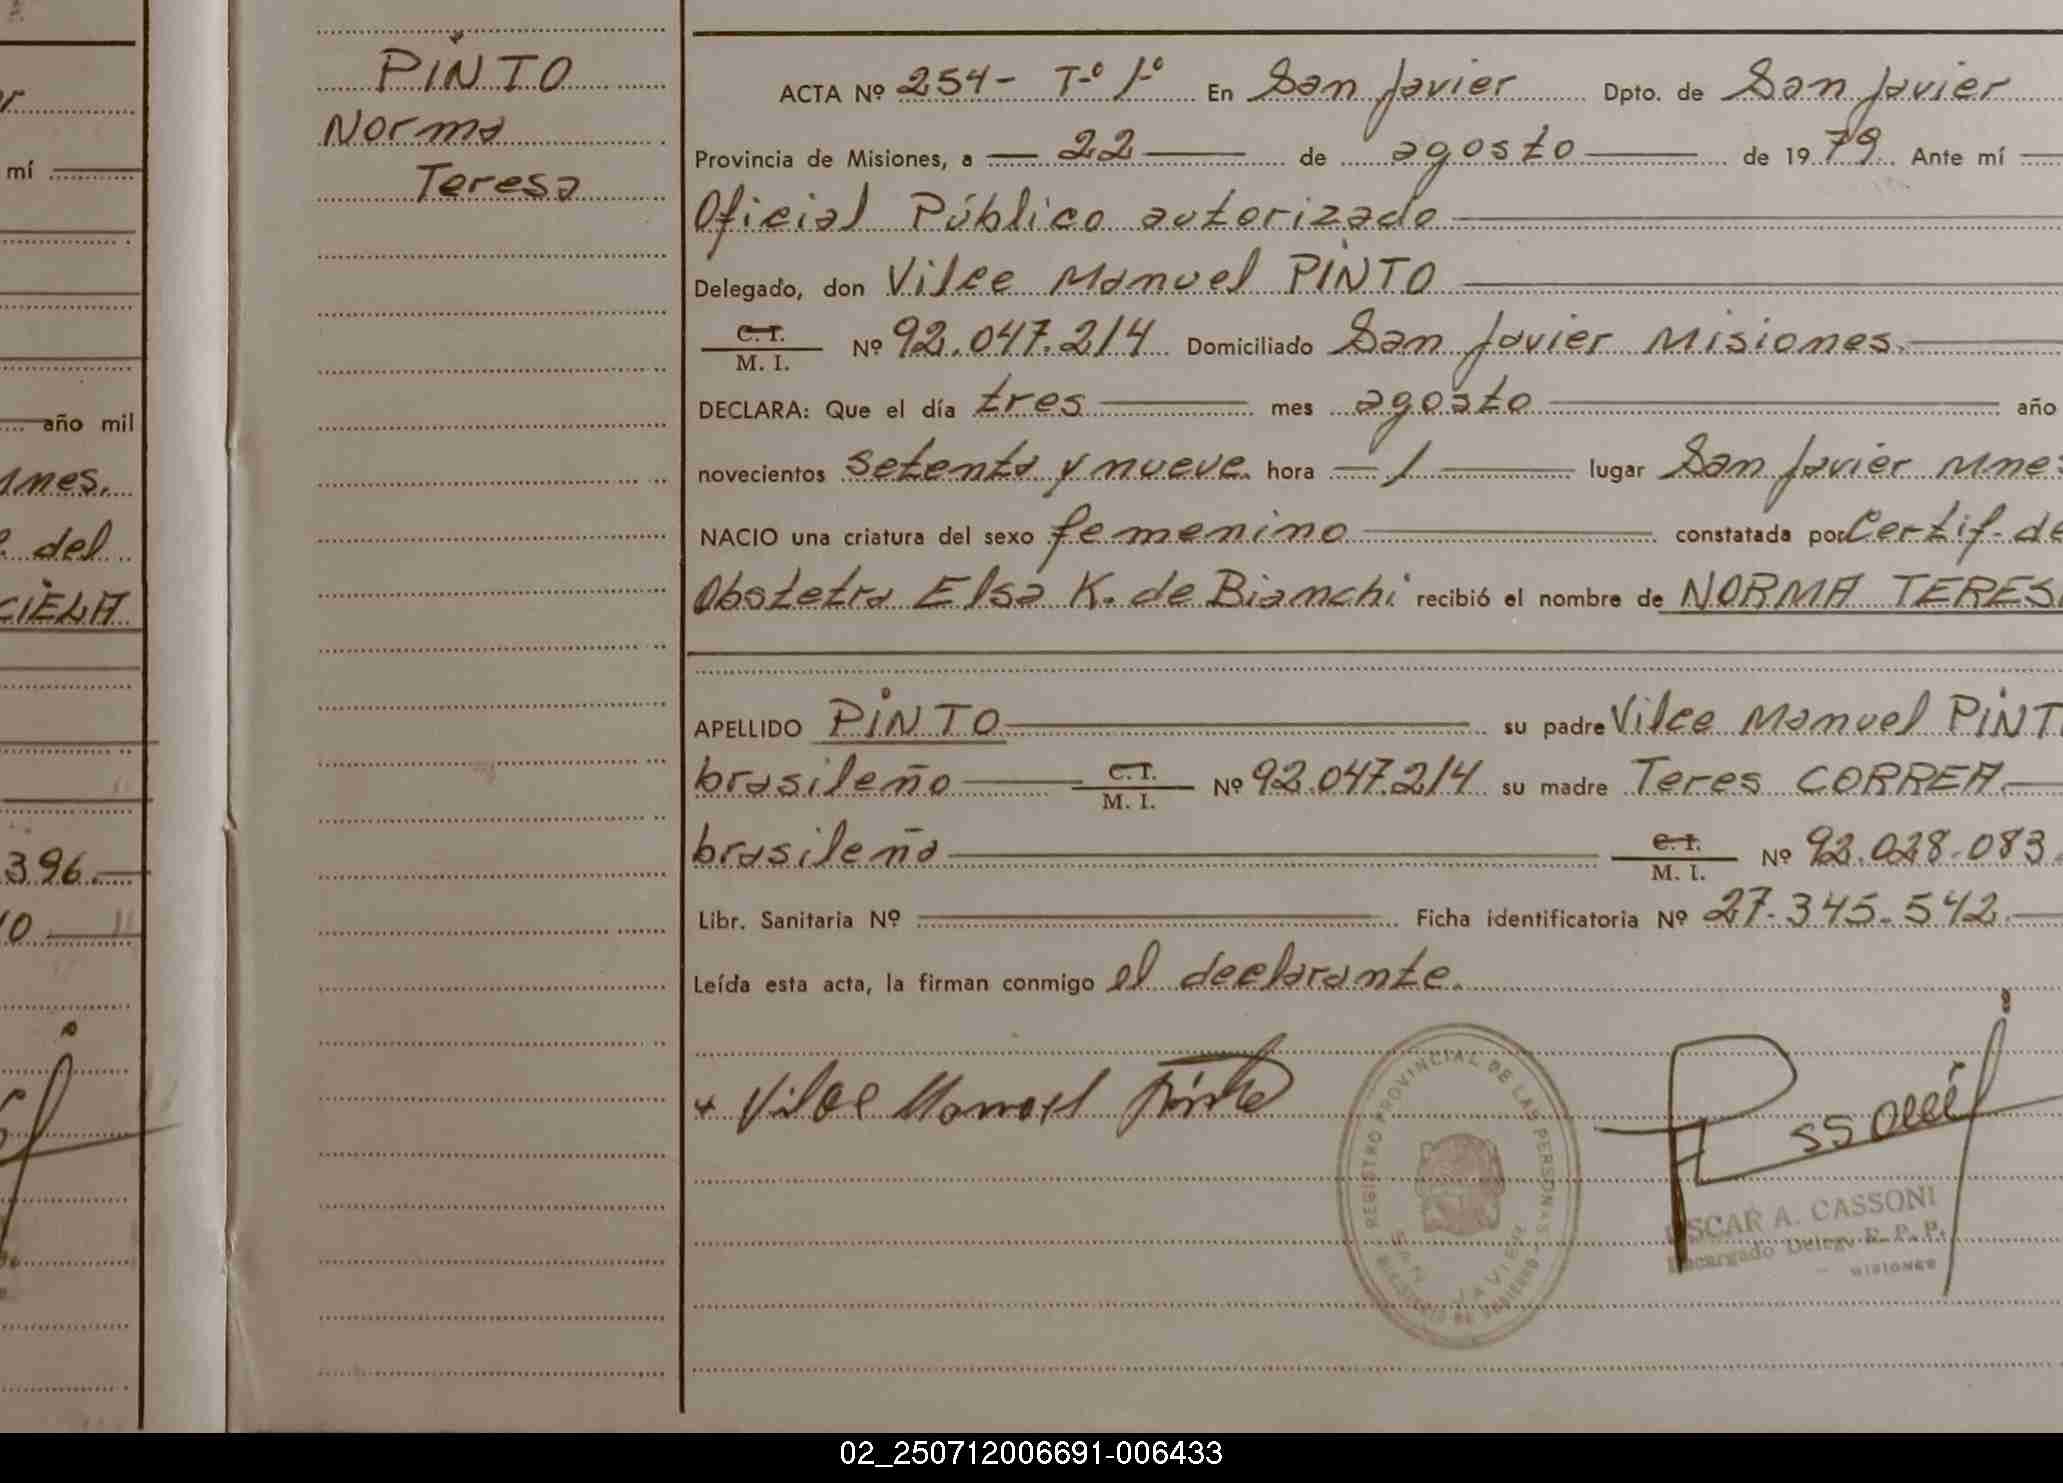 PINTO
Norma
Teresa
mí
año mil
mnes.
del
CIELA
396.
10
ACTA Nº 254- Tº 1º En San Javier Dpto. de San Javier
Provincia de Misiones, a 22 de agosto de 1979 Ante mí
Oficial Público autorizado
Delegado, don Vilce Manuel PINTO
C. I.
M. I. Nº 92.047.214 Domiciliado San Javier Misiones.
DECLARA: Que el día tres mes agosto año
novecientos setenta y nueve. hora 1 lugar San Javier Mnes
NACIO una criatura del sexo femenino constatada por Certif. de
Obstetra Elsa K. de Bianchi recibió el nombre de NORMA TERESA
APELLIDO PINTO su padre Vilce Manuel PINT
brasileño C. I. M. I. Nº 92.047.214 su madre Teres CORREA
brasileña C. I. M. I. Nº 92.028.083.
Libr. Sanitaria Nº Ficha identificatoria Nº 27.345.542.
Leída esta acta, la firman conmigo el declarante.
Vilce Manuel Pinto
REGISTRO PROVINCIAL DE LAS PERSONAS
SAN JAVIER
MINISTERIO DE GOBIERNO
OSCAR A. CASSONI
Encargado Deleg. R. P. P.
MISIONES
02_250712006691-006433